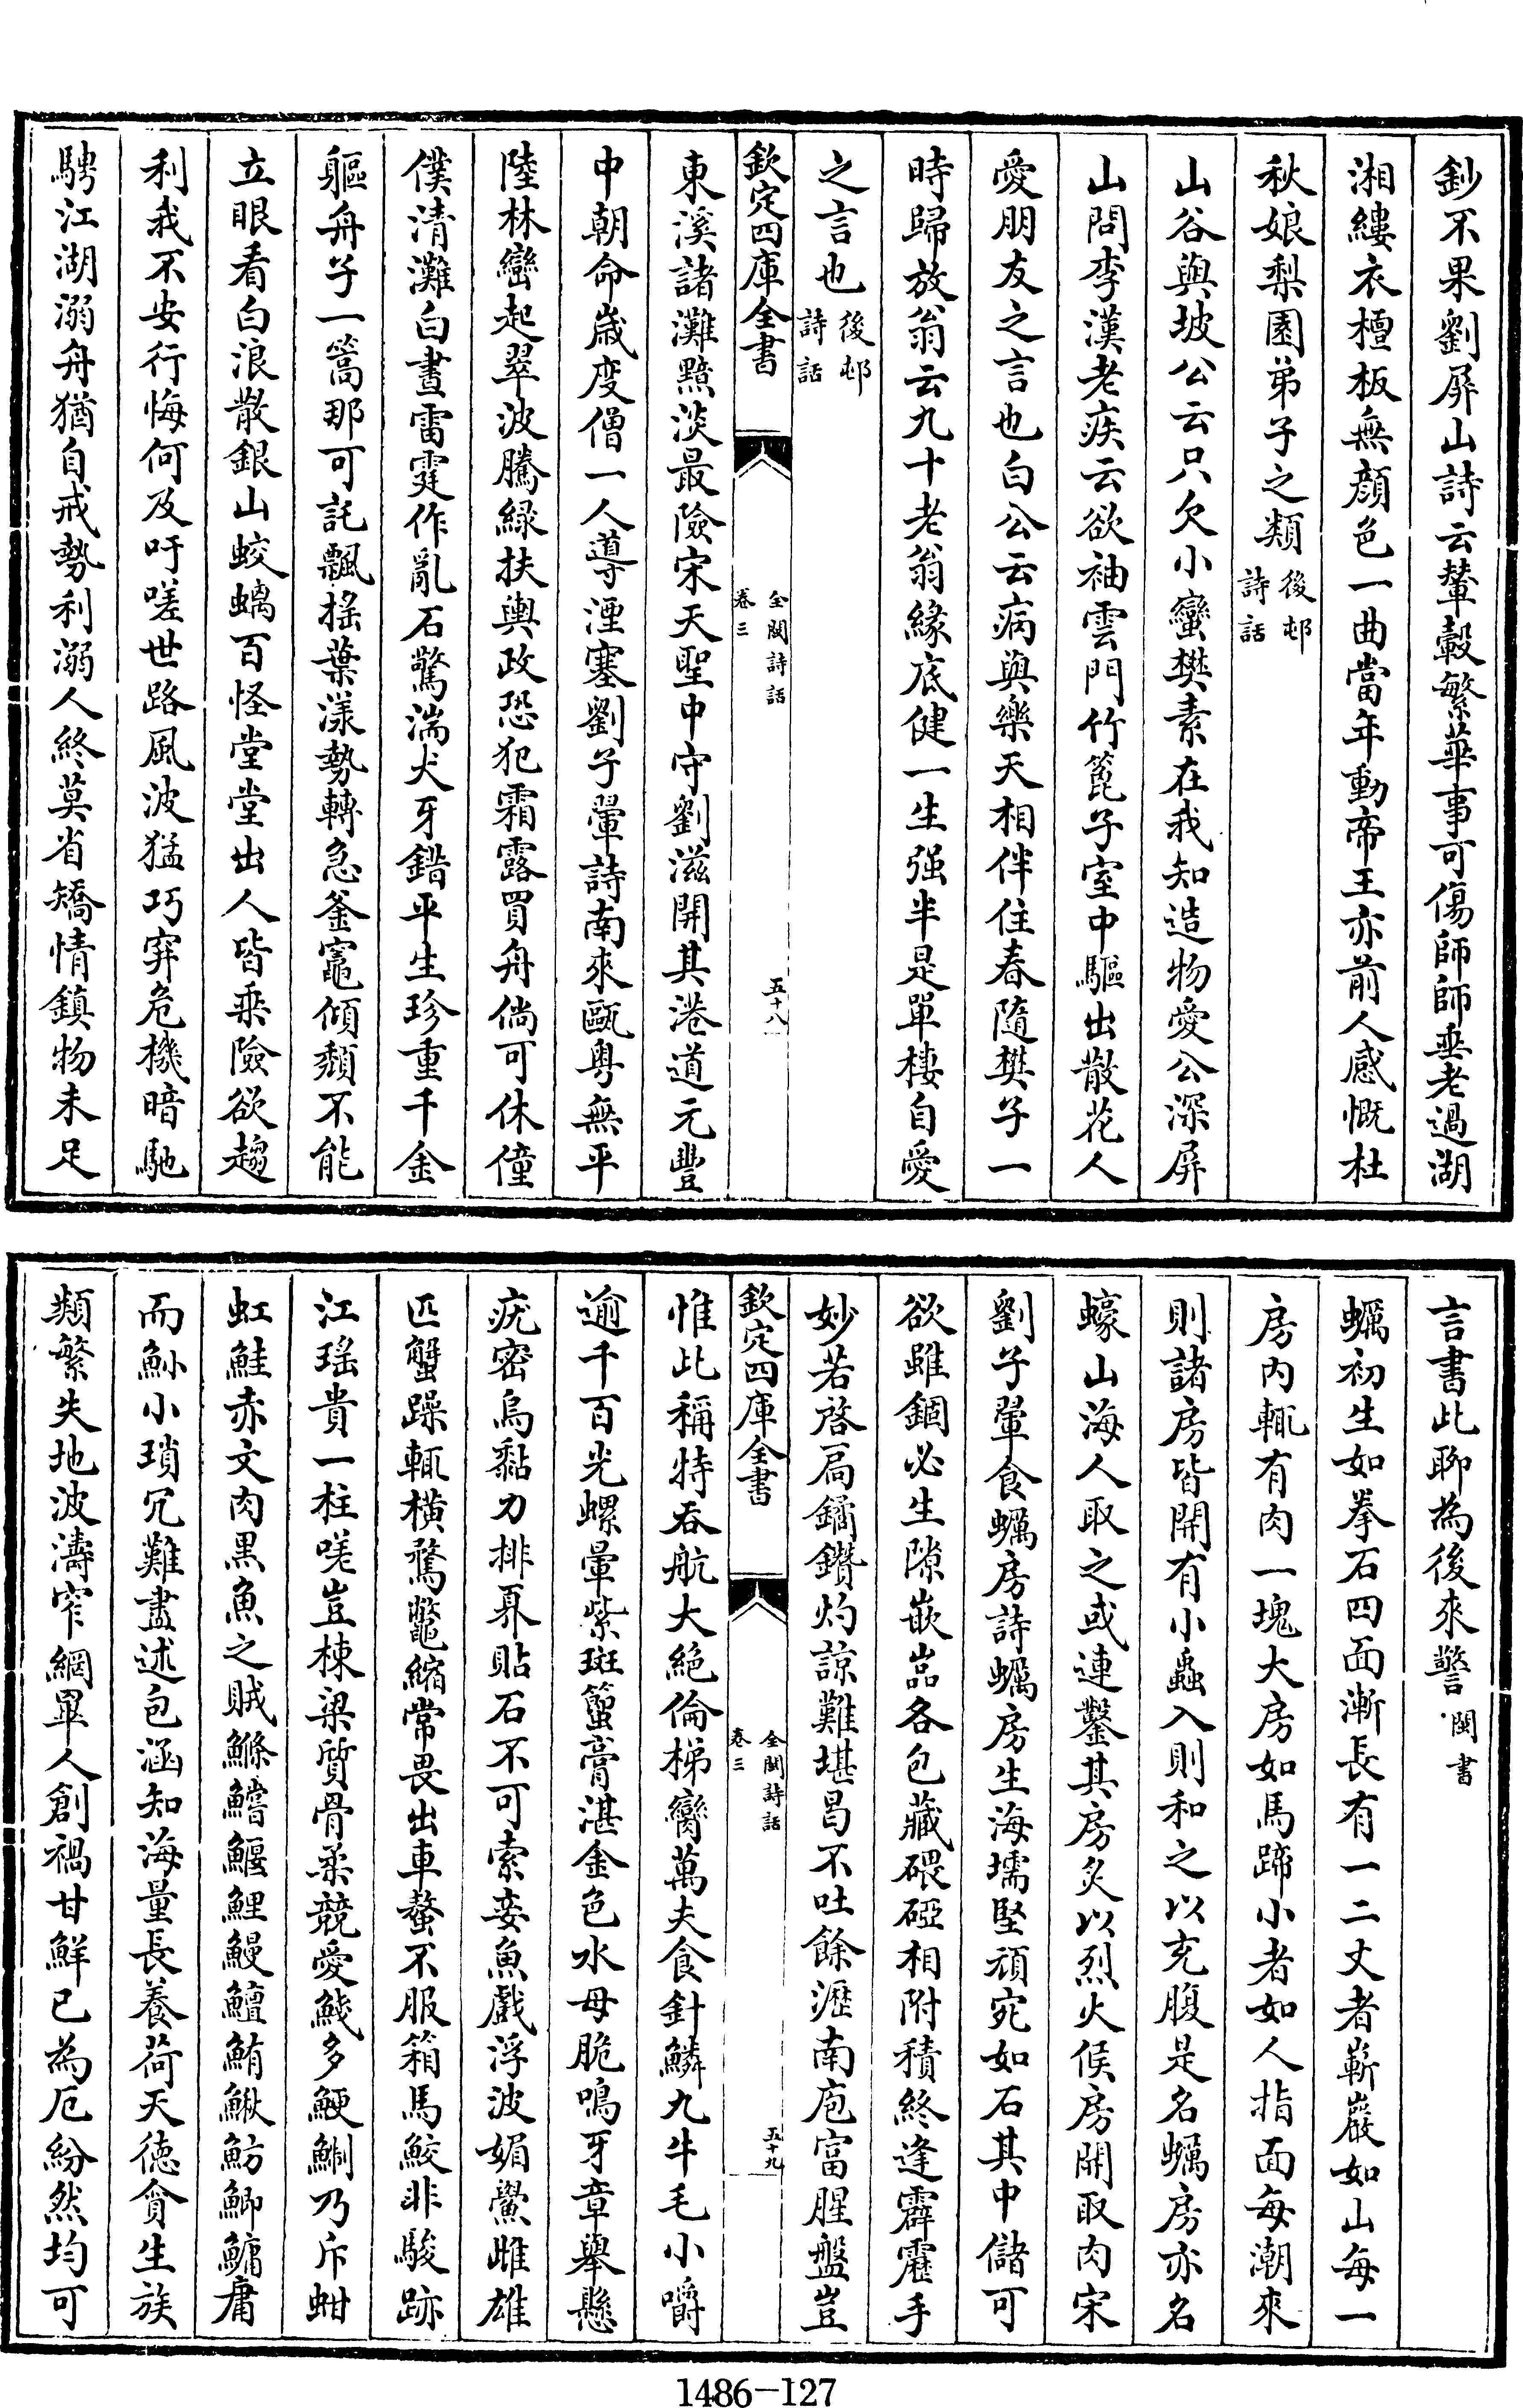 鈔不果劉屏山詩云輦轂繁華事可傷師師垂老過湖
湘縷衣檀板無顔色一曲當年動帝王亦前人感慨杜
秋娘梨園弟子之類後邨詩話
山谷與坡公云只欠小蠻樊素在我知造物愛公深屏
山問李漢老疾云欲袖雲門竹篦子室中驅出散花人
愛朋友之言也白公云病與樂天相伴住春隨樊子一
時歸放翁云九十老翁緣底健一生强半是單棲自愛
之言也後邨詩話
欽定四庫全書
全閩詩話
卷三
五十八
東溪諸灘黯淡最險宋天聖中守劉滋開其港道元豐
中朝命歳度僧一人導湮塞劉子翬詩南來甌粤無平
陸林巒起翠波騰緑扶輿政恐犯霜露買舟倘可休僮
僕清灘白晝雷霆作亂石驚湍犬牙錯平生珍重千金
軀舟子一篙那可託飄揺葉漾勢轉急釜竈傾頽不能
立眼看白浪散銀山蛟螭百怪堂堂出人皆乘險欲趨
利我不安行悔何及吁嗟世路風波猛巧穽危機暗馳
騁江湖溺舟猶自戒勢利溺人終莫省矯情鎮物未足
言書此聊為後來警閩書
蠣初生如拳石四面漸長有一二丈者嶄巖如山每一
房内輒有肉一塊大房如馬蹄小者如人指面每潮來
則諸房皆開有小蟲入則和之以充腹是名蠣房亦名
蠔山海人取之或連鑿其房炙以烈火候房開取肉宋
劉子翬食蠣房詩蠣房生海壖堅頑宛如石其中儲可
欲雖錮必生隙嵌嵓各包藏磈磈相附積終逢霹靂手
妙若啓扃鐍鑽灼諒難堪曷不吐餘瀝南庖富腥盤豈
欽定四庫全書
全閩詩話
卷三
五十九
惟此稱特吞航大絶倫梯臠萬夫食針鱗九牛毛小嚼
逾千百光螺暈紫斑蟹膏湛金色水母脆鳴牙章舉懸
疣密烏黏力排奡貼石不可索妾魚戲浮波媚鱟雌雄
匹蟹躁輒横騖鼈縮常畏出車螯不服箱馬鮫非駿跡
江瑤貴一柱嗟豈棟梁質骨柔競愛鯎多鯁鰂乃斥蚶
虹鮭赤文肉黒魚之賊鰷鱨鰋鯉鰻鱣鮪鰍魴鯽鱅庸
而鮛小瑣冗難盡述包涵知海量長養荷天徳貪生族
類繁失地波濤窄網罼人創禍甘鮮已為厄紛然均可
1486—127